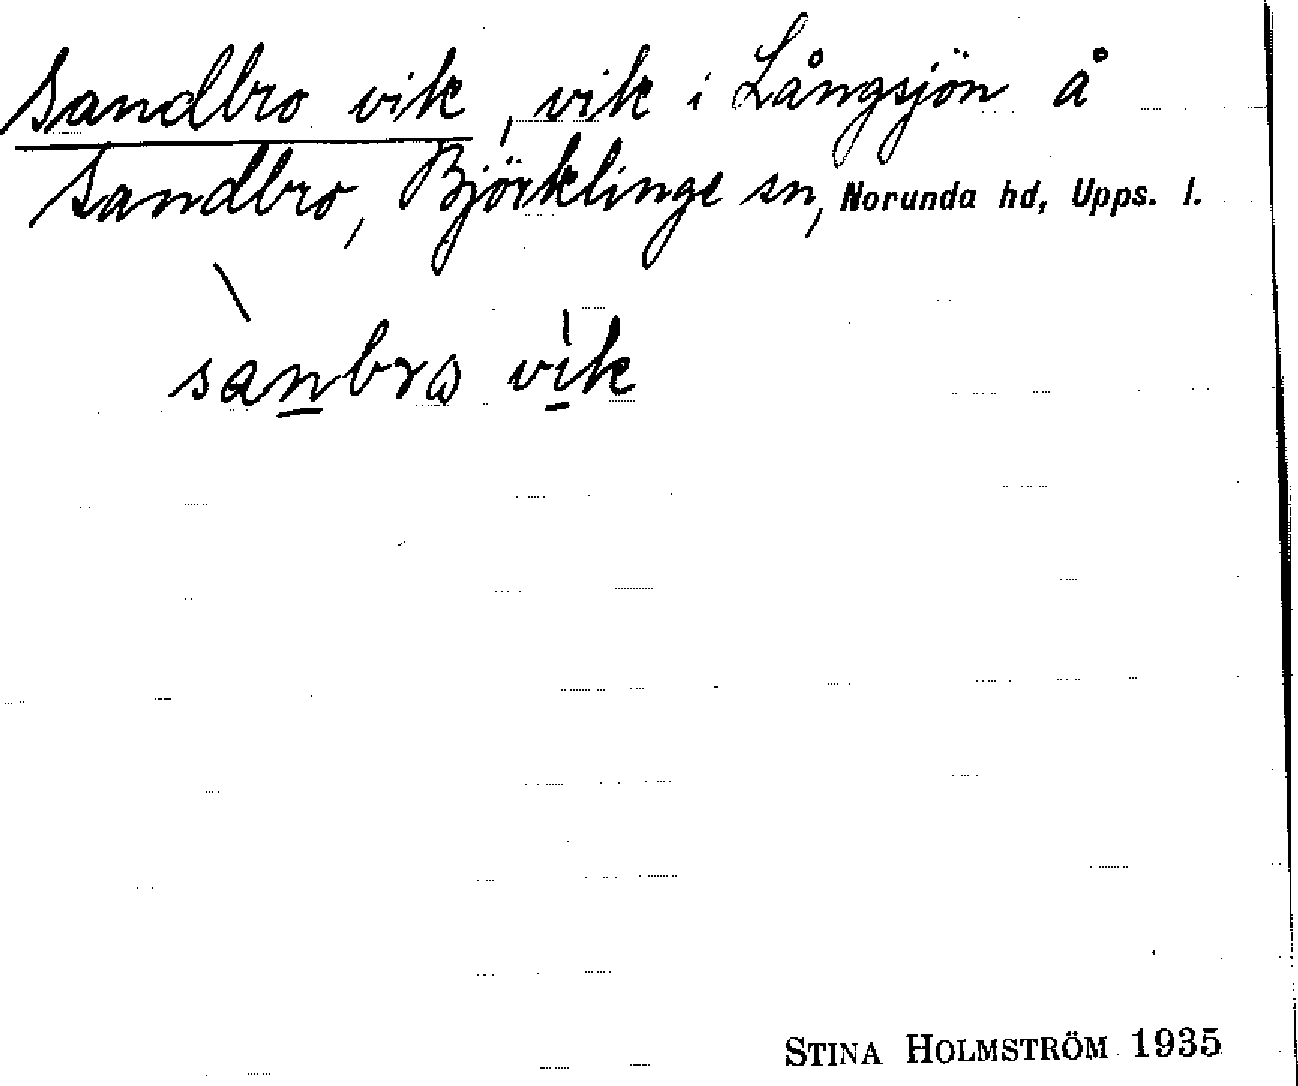 Sandbro vik, vik i Långsjön å
Sandbro, Björklinge sn, Norunda hd, Upps. l.
sanbrɷ vik
STINA HOLMSTRÖM 1935